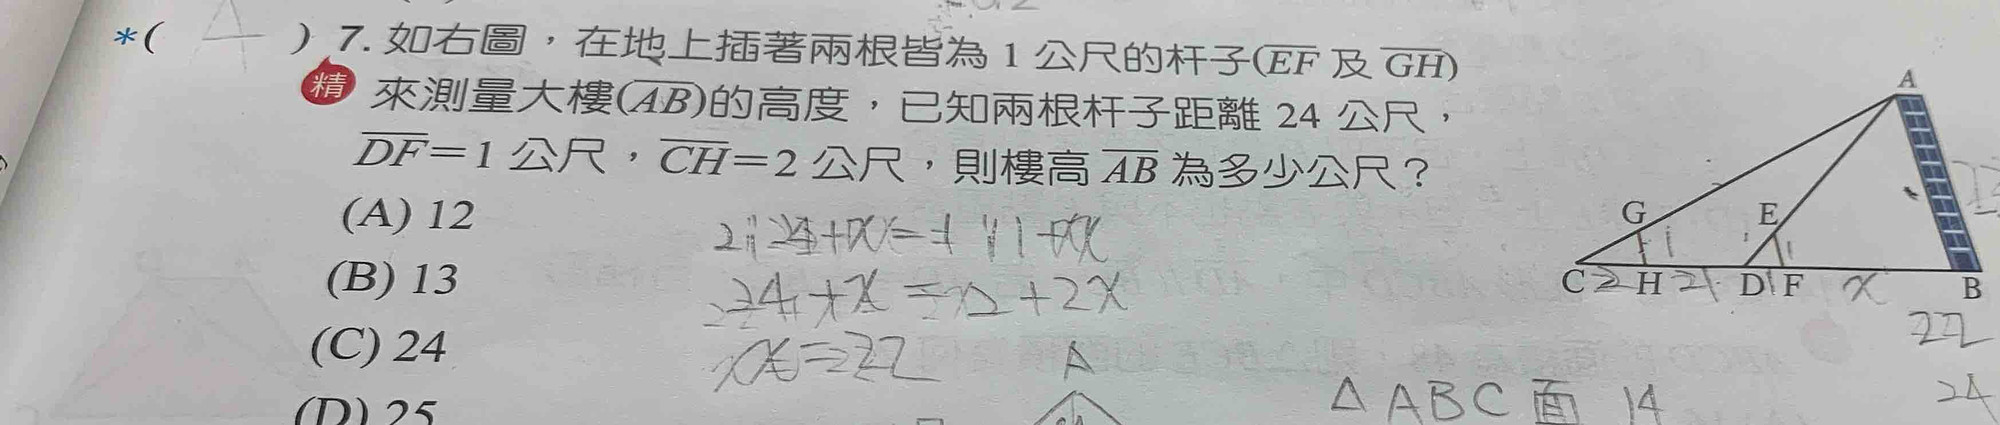 *( ) 7. 如右圖，在地上插著兩根皆為 1 公尺的杆子(EF 及 GH)
精 來測量大樓(AB)的高度，已知兩根杆子距離 24 公尺，
DF＝1 公尺，CH＝2 公尺，則樓高 AB 為多少公尺？
(A) 12
(B) 13
(C) 24
(D) 25
A
G E
1 1
C 2 H 21 D 1 F x B
22
24
24+x=2+2x
x=22
A
△ABC面 14